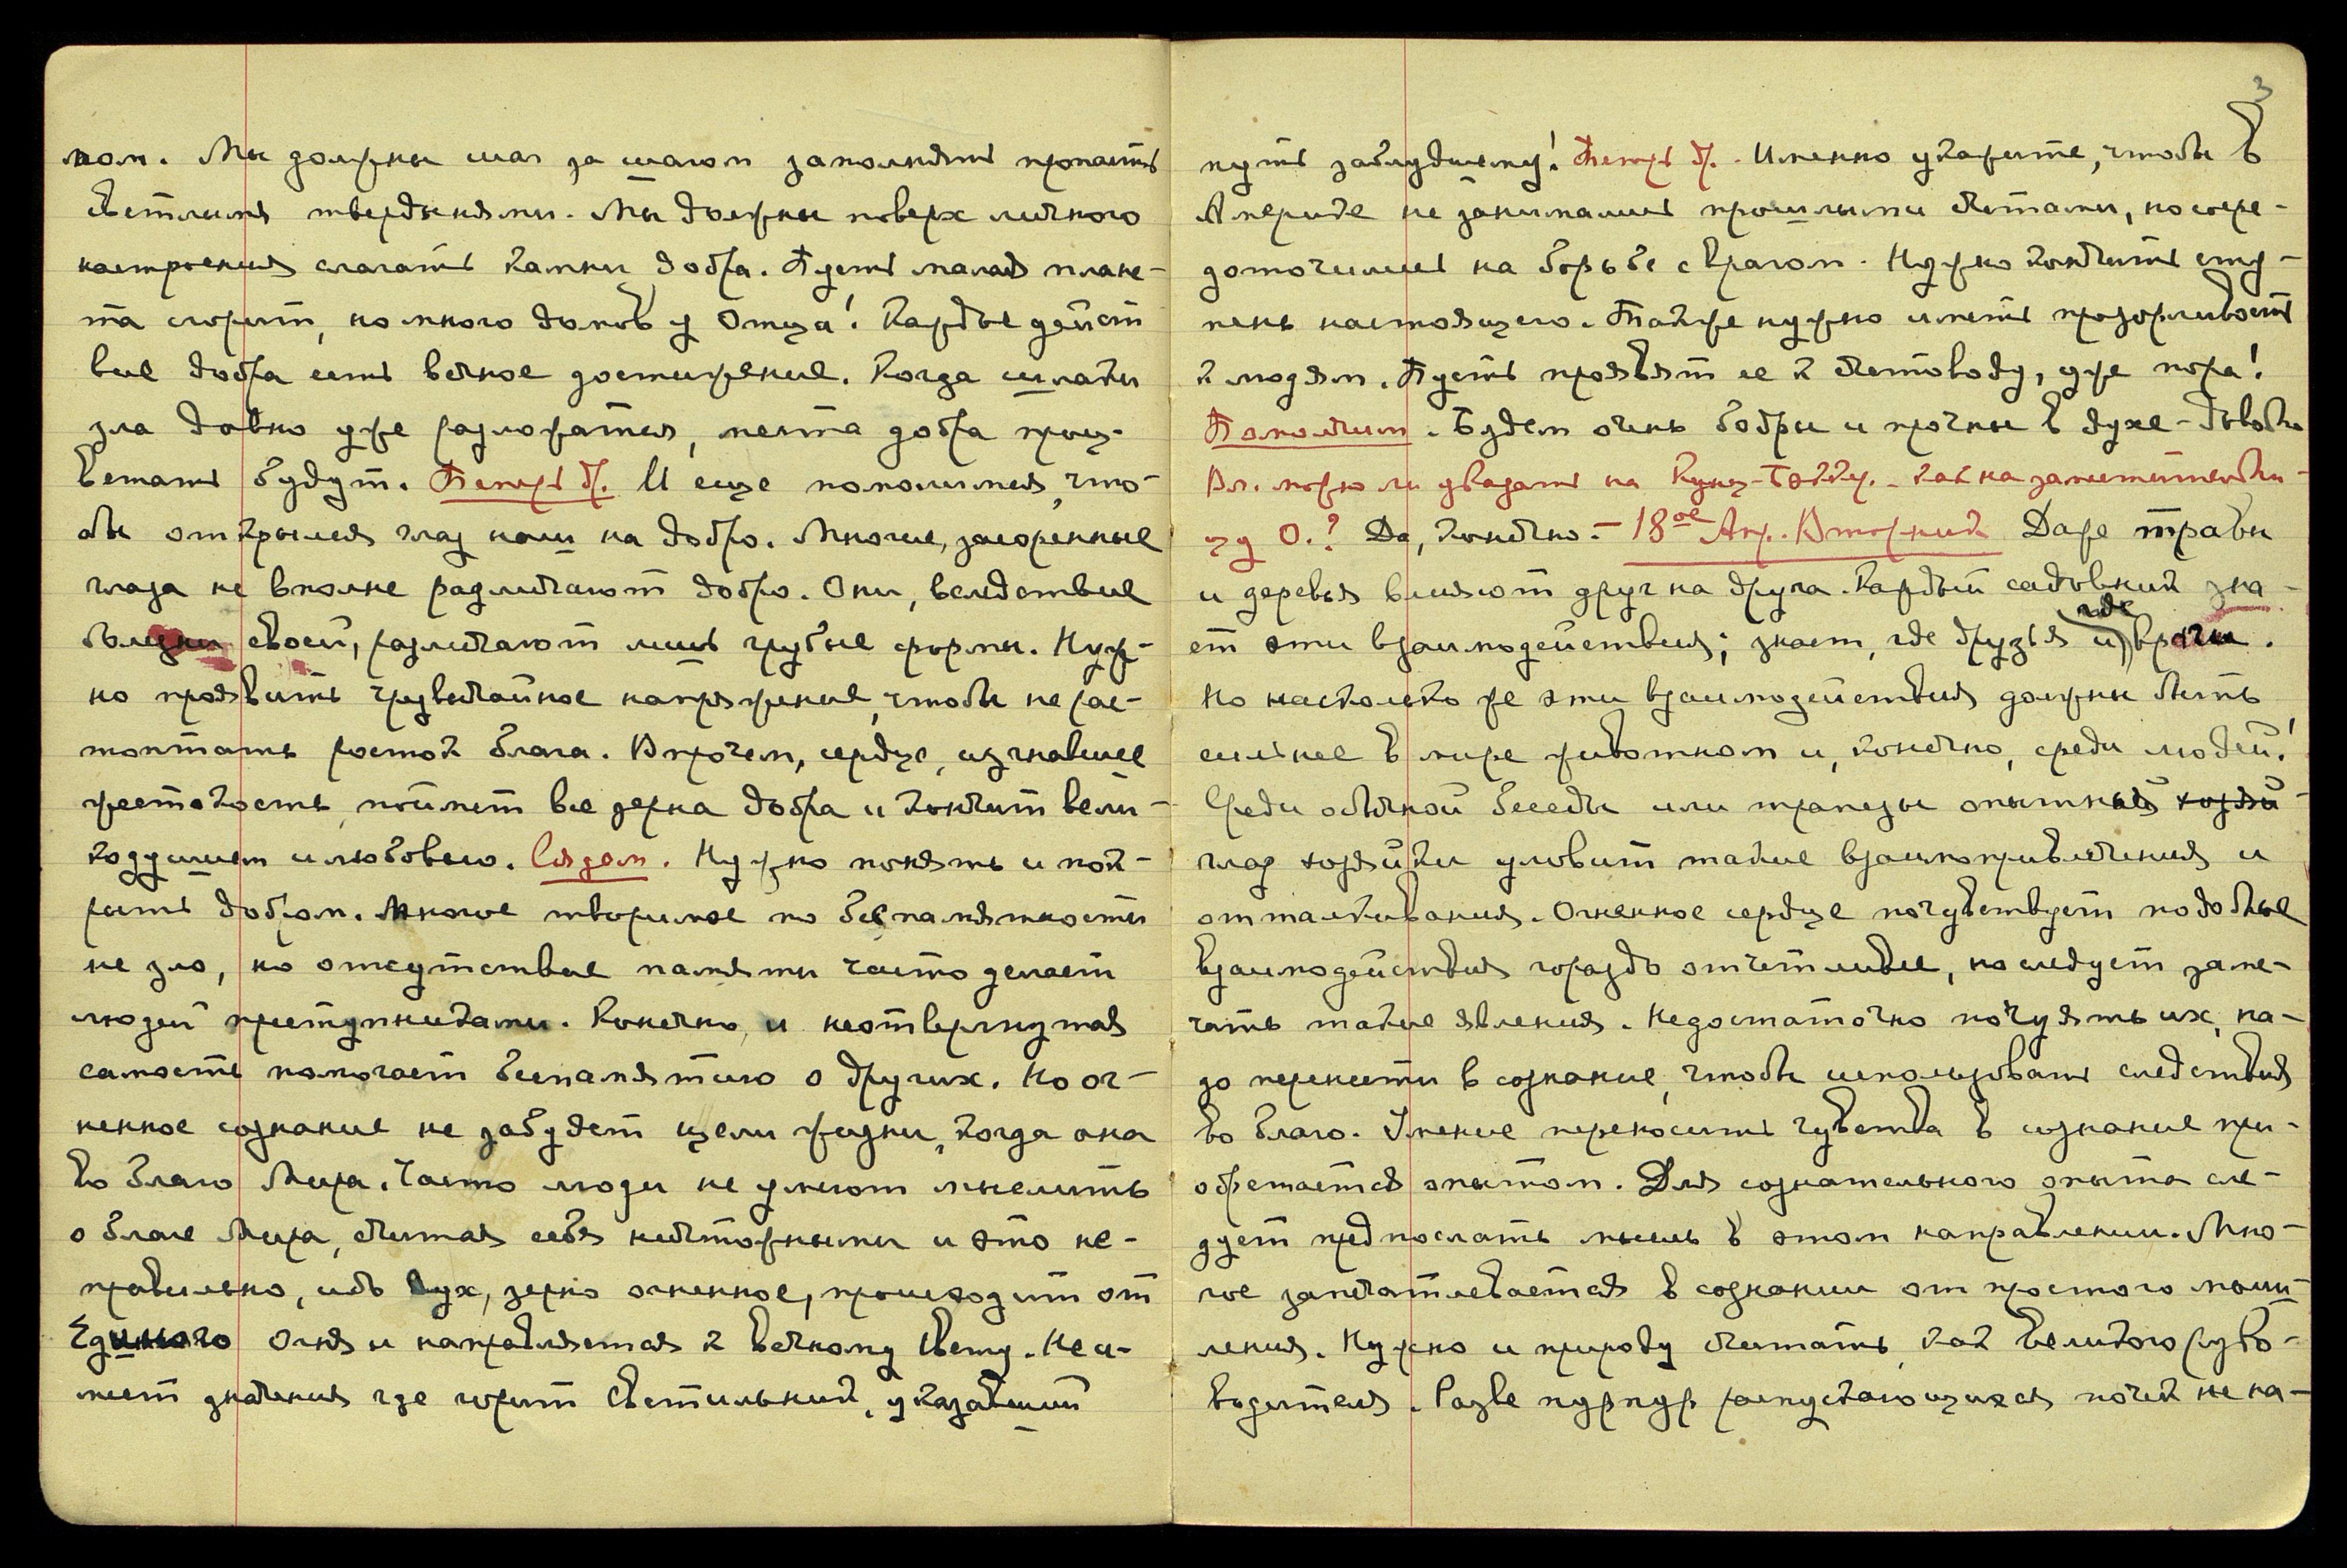 ком. Мы должны шаг за шагом заполнять пропасть
светлыми твердынями. Мы должны поверх личного
настроения слагать камни добра. Пусть малая плане-
та сгорит, но много домов у Отца! Каждое дейст
вие добра есть вечное достижение. Когда шлаки
зла давно уже разложатся, места добра проц-
ветать будут. И еще помолимся, что-
бы открылся глаз наш на добро. Многие, засоренные
глаза не вполне различают добро. Они, вследствие
болезни своей, различают лишь грубые формы. Нуж-
но проявить чрезвычайное напряжение, чтобы не рас-
топтать росток блага. Впрочем, сердце, изгнавшее
жестокость, поймет все зерна добра и кончит вели-
кодушием и любовью. Сядем. Нужно понять и пок-
рыть добром. Многое творимое по беспамятности
не зло, но отсутствие памяти часто делает
людей преступниками. Конечно, и неотвергнутая
самость помогает беспамятию о других. Но ог-
ненное сознание не забудет цели жизни, когда она
во благо Мира. Часто люди не умеют мыслить
о благе Мира, считая себя ничтожными и это не-
правильно, ибо дух, зерно огненное, происходит от
Единого Огня и направляется к вечному Свету. Не и-
меет значения где горит светильник, указавший
3
путь заблудшему! Именно укажите, чтобы в
Америке не занимались прошлыми счетами, но сосре-
доточились на борьбе с врагом. Нужно кончить сту-
пень настоящего. Также нужно иметь прозорливость
к людям. Пусть проявят ее к счетоводу, уже пора!
Помолчим. Будем очень бодры и прочны в духе - довольно
Вл. можно ли указать на как на заместительни-
цу О.? Да, конечно. - 18ое Апр. Вторник Даже травы
и деревья влияют друг на друга. Каждый садовник зна-
ет эти взаимодействия; знает, где друзья и где враги.
Но насколько же эти взаимодействия должны быть
сильнее в мире животном и, конечно, среди людей!
Среди обычной беседы или трапезы опытный хозяй
глаз хозяйки уловит такие взаимопривлечения и
отталкивания. Огненное сердце почувствует подобные
взаимодействия гораздо отчетливее, но следует заме-
чать такие явления. Недостаточно почуять их, на-
до перенести в сознание, чтобы использовать следствия
во благо. Умение переносить чувства в сознание при-
обретается опытом. Для сознательного опыта сле-
дует предпослать мысль в этом направлении. Мно-
гое запечатлевается в сознании от простого помыш
ления. Нужно и природу считать, как великого руко-
водителя. Разве пурпур распускающихся почек не на-